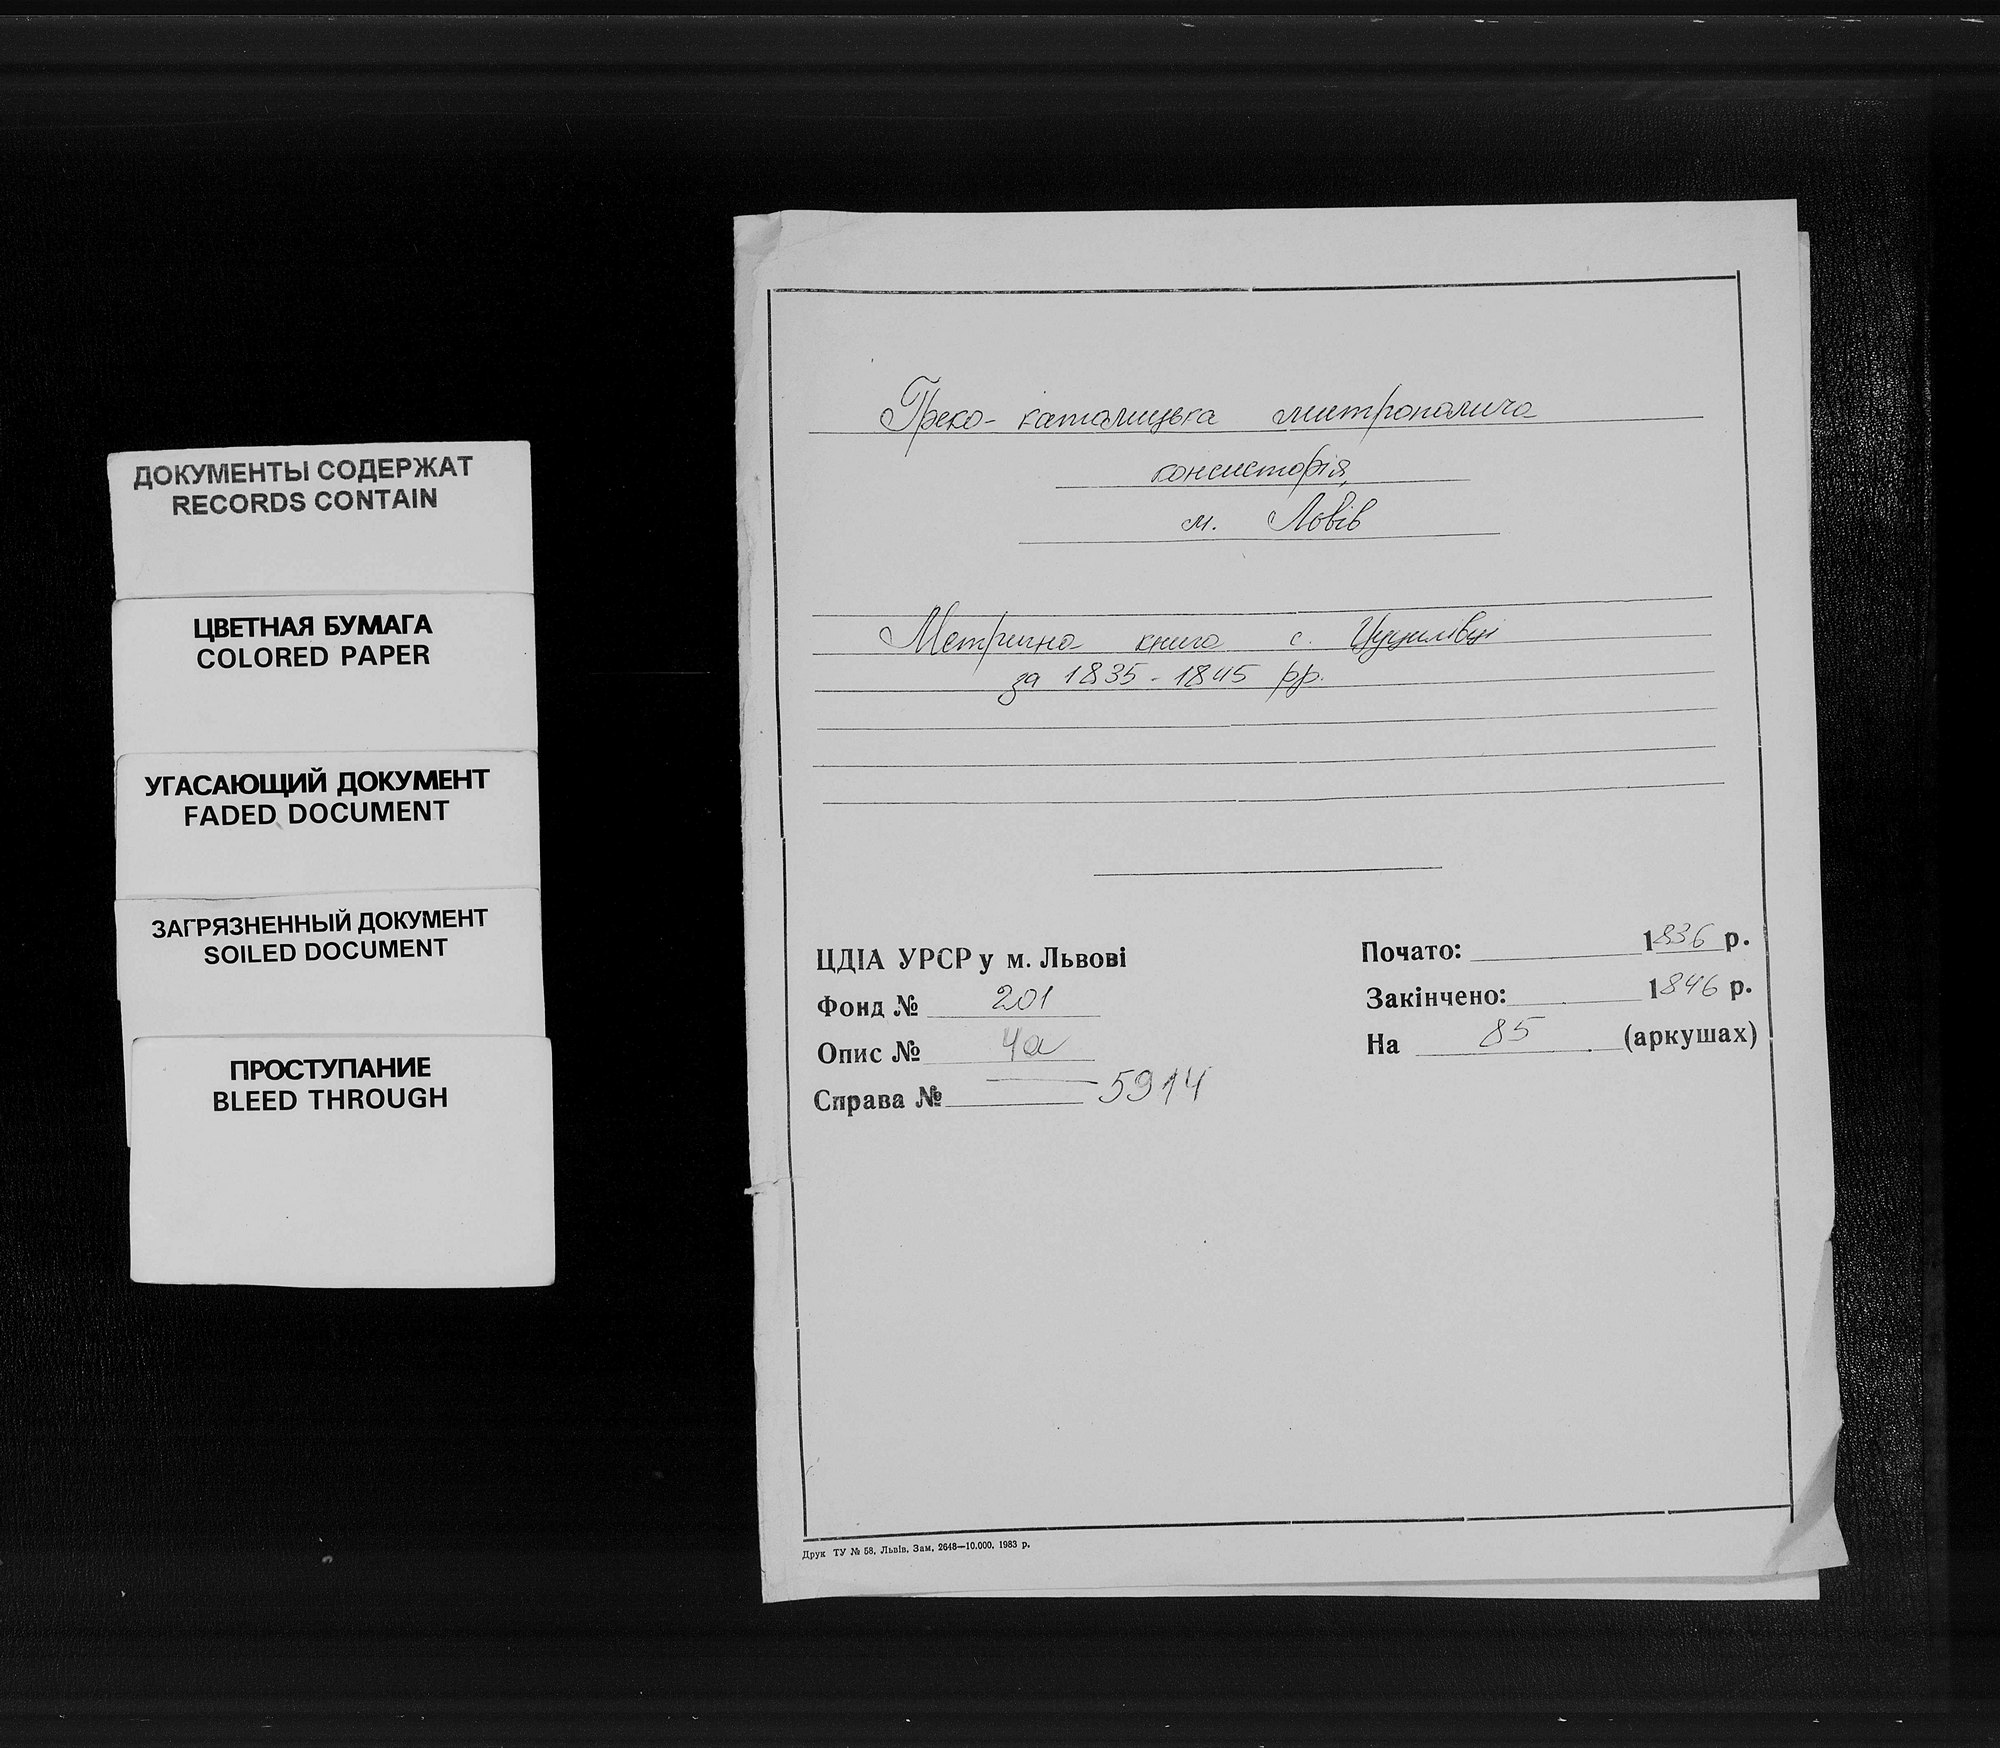 ДОКУМЕНТЫ СОДЕРЖАТ
RECORDS CONTAIN
ЦВЕТНАЯ БУМАГА
COLORED PAPER
УГАСАЮЩИЙ ДОКУМЕНТ
FADED DOCUMENT
ЗАГРЯЗНЕННЫЙ ДОКУМЕНТ
SOILED DOCUMENT
ПРОСТУПАНИЕ
BLEED THROUGH
Греко-католицька митрополича
консисторія,
м. Львів
Метрична книга с. Цуцилівці
за 1835-1845 рр.
ЦДІА УРСР у м. Львові
Фонд № 201
Опис № 4а
Справа № 5914
Почато: 1836 р.
Закінчено: 1846 р.
На 85 (аркушах)
Друк ТУ № 58, Львів, Зам. 2648—10.000. 1983 р.